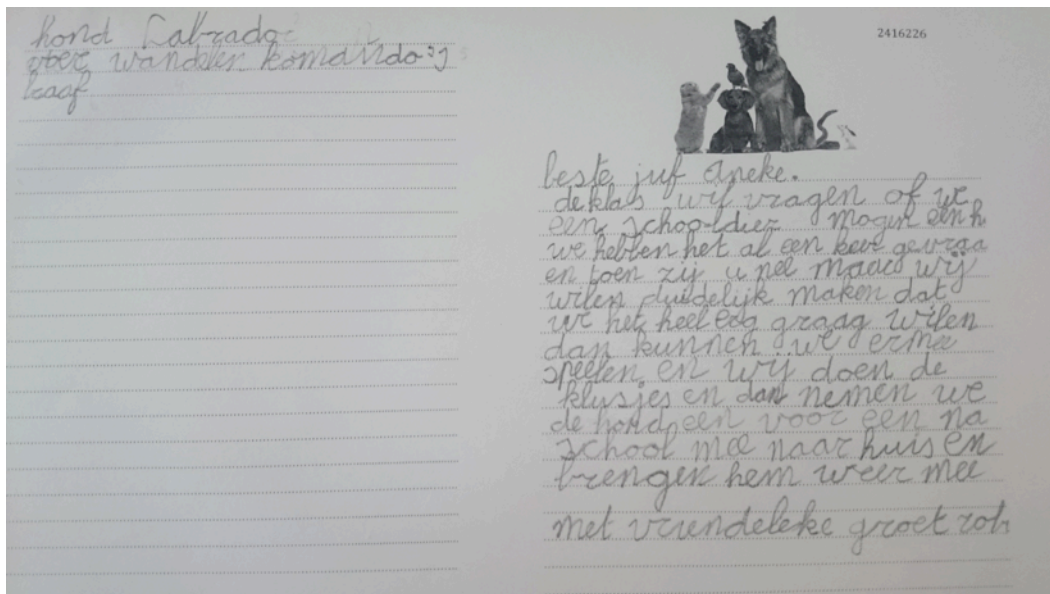 hond Labrador
voer wandelen komando's
braaf
2416226
beste juf Aneke.
de klas wil vragen of we
een schooldier mogen een h
we hebben het al een keer gevraa
en toen zij u nee maar wij
wilen duidelijk maken dat
we het heel erg graag wilen
dan kunnen we ermee
speelen en wij doen de
klusjes en dan nemen we
de hond een voor een na
school mee naar huis en
brengen hem weer mee
met vriendeleke groet rob